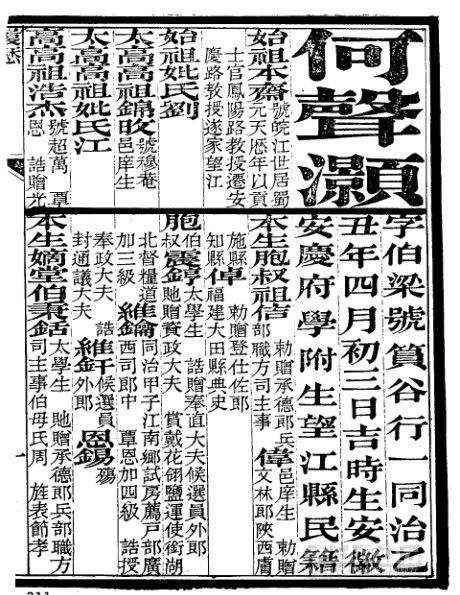 何聲灝
字伯梁號篔谷行一同治乙
丑年四月初三日吉時生安徽
安慶府學附生望江縣民籍
始祖本齋 號皖江世居蜀
元天歷年以貢
士官鳳陽路教授遷安
慶路教授遂家望江
始祖妣氏劉
太高高祖錦 號穆菴
邑庠生
太高高祖妣氏江
高高祖浩杰 號超萬 覃
恩 誥贈光
本生胞叔祖信 勅贈承德郎兵
部職方司主事 偉 邑庠生 勅贈
文林郎陝西膚
施縣
知縣 倬 勅贈登仕佐郎
福建大田縣典史
胞伯
叔 震錞 太學生 誥贈奉直大夫候選員外郎
貤贈資政大夫 賞戴花翎鹽運使銜湖
北督糧道
加三級 維鑰 同治甲子江南鄉試房薦戶部廣
西司郎中 覃恩加四級 誥授
奉政大夫 誥
封通議大夫 維釬 候選員
外郎 恩錫 殤
本生嫡堂伯秉銛 太學生 貤贈承德郎兵部職方
司主事伯母氏周 旌表節孝
一
211